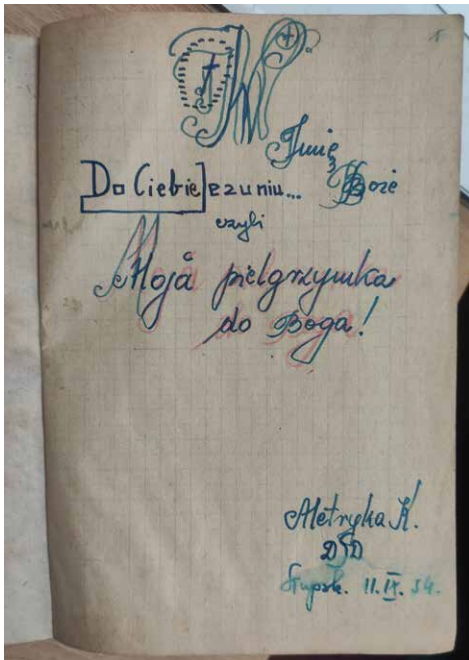 1
W
Imię
Boże
Do Ciebie Jezuniu...
czyli
Moja pielgrzymka
do Boga!
Metryka K.
Słupsk. 11.IX.54.